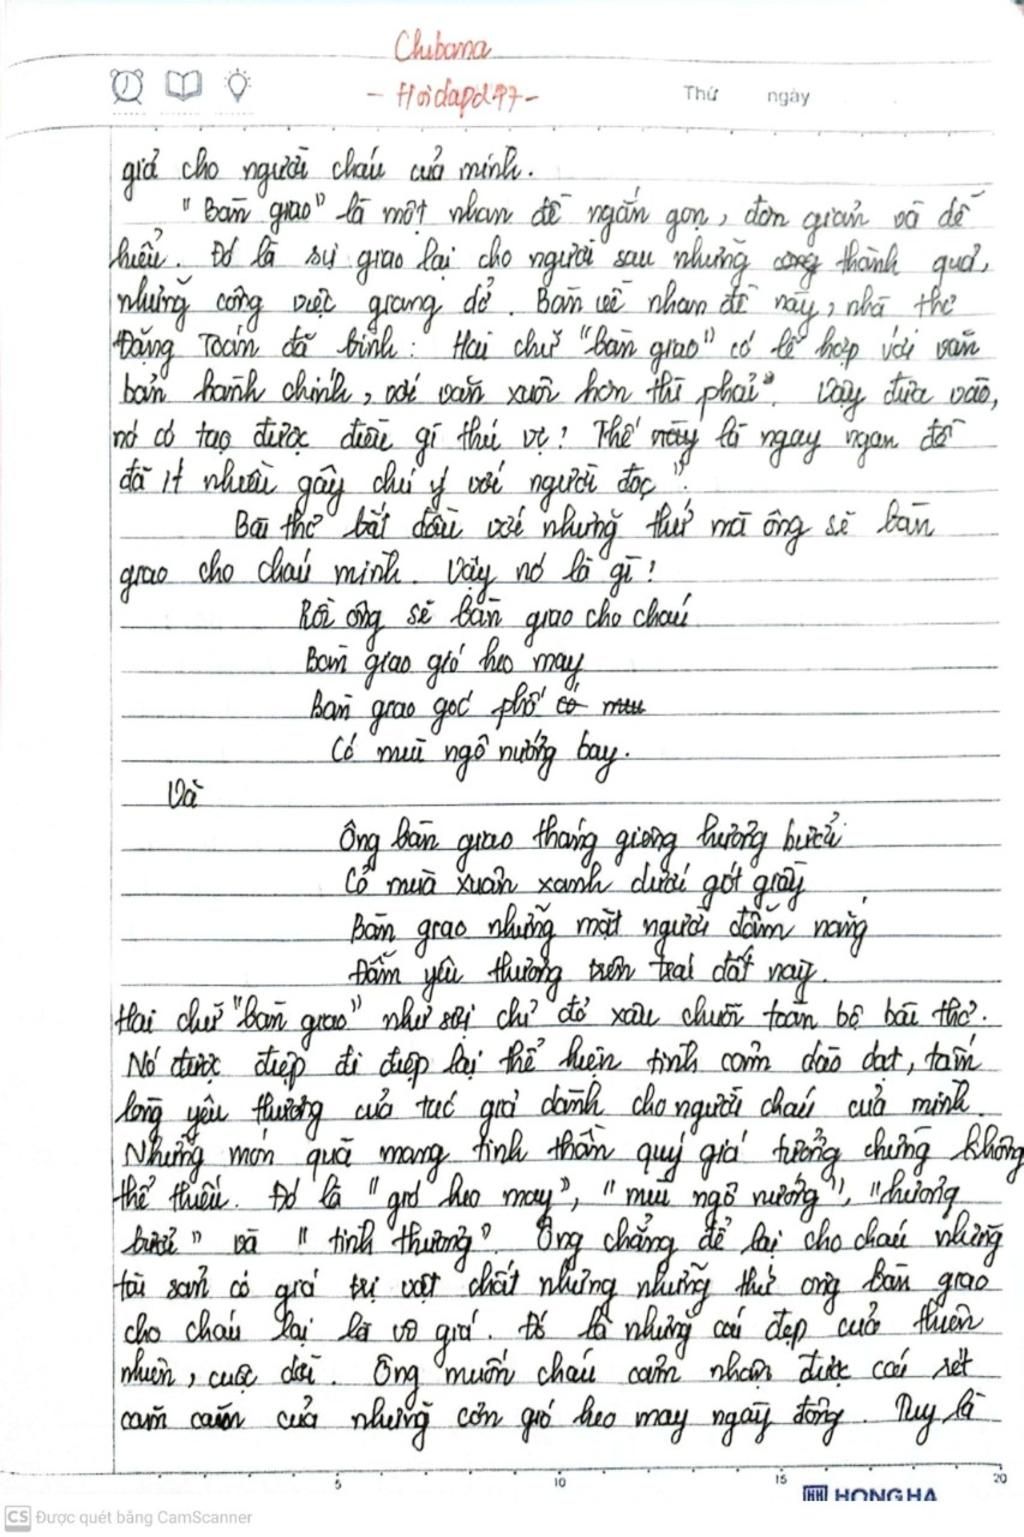 Chibana
- Hoidapd97-
Thứ ngày
giả cho người cháu của mình.
"Bàn giao" là một nhan đề ngắn gọn, đơn giản và dễ
hiểu. Đó là sự giao lại cho người sau những công thành quả,
những công việc giang dở. Bàn về nhan đề này, nhà thơ
Đặng Toán đã bình: Hai chữ "bàn giao" có lẽ hợp với văn
bản hành chính, với văn xuôi hơn thì phải". Vậy đưa vào,
nó có tạo được điều gì thú vị? Thế này là ngay ngan đề
đã ít nhiều gây chú ý với người đọc".
Bài thơ bắt đầu với những thứ mà ông sẽ bàn
giao cho cháu mình. Vậy nó là gì?
Rồi ông sẽ bàn giao cho cháu
Bàn giao gió heo may
Bàn giao góc phố có mùi
Có mùi ngô nướng bay.
Và
Ông bàn giao tháng giêng hương bưởi
Cỏ mùa xuân xanh dưới gót giày
Bàn giao những mặt người đẫm nắng
Đẫm yêu thương trên trái đất này.
Hai chữ "bàn giao" như sợi chỉ đỏ xâu chuỗi toàn bộ bài thơ.
Nó được điệp đi điệp lại thể hiện tình cảm dào dạt, tấm
lòng yêu thương của tác giả dành cho người cháu của mình.
Những món quà mang tinh thần quý giá tưởng chừng không
thể thiếu. Đó là "gió heo may", "mùi ngô nướng", "hương
bưởi" và "tình thương". Ông chẳng để lại cho cháu những
tài sản có giá trị vật chất nhưng những thứ ông bàn giao
cho cháu lại là vô giá. Đó là những cái đẹp của thiên
nhiên, cuộc đời. Ông muốn cháu cảm nhận được cái rét
căm căm của những cơn gió heo may ngày đông. Tuy là
5 10 15 20
HONG HA
CS Được quét bằng CamScanner